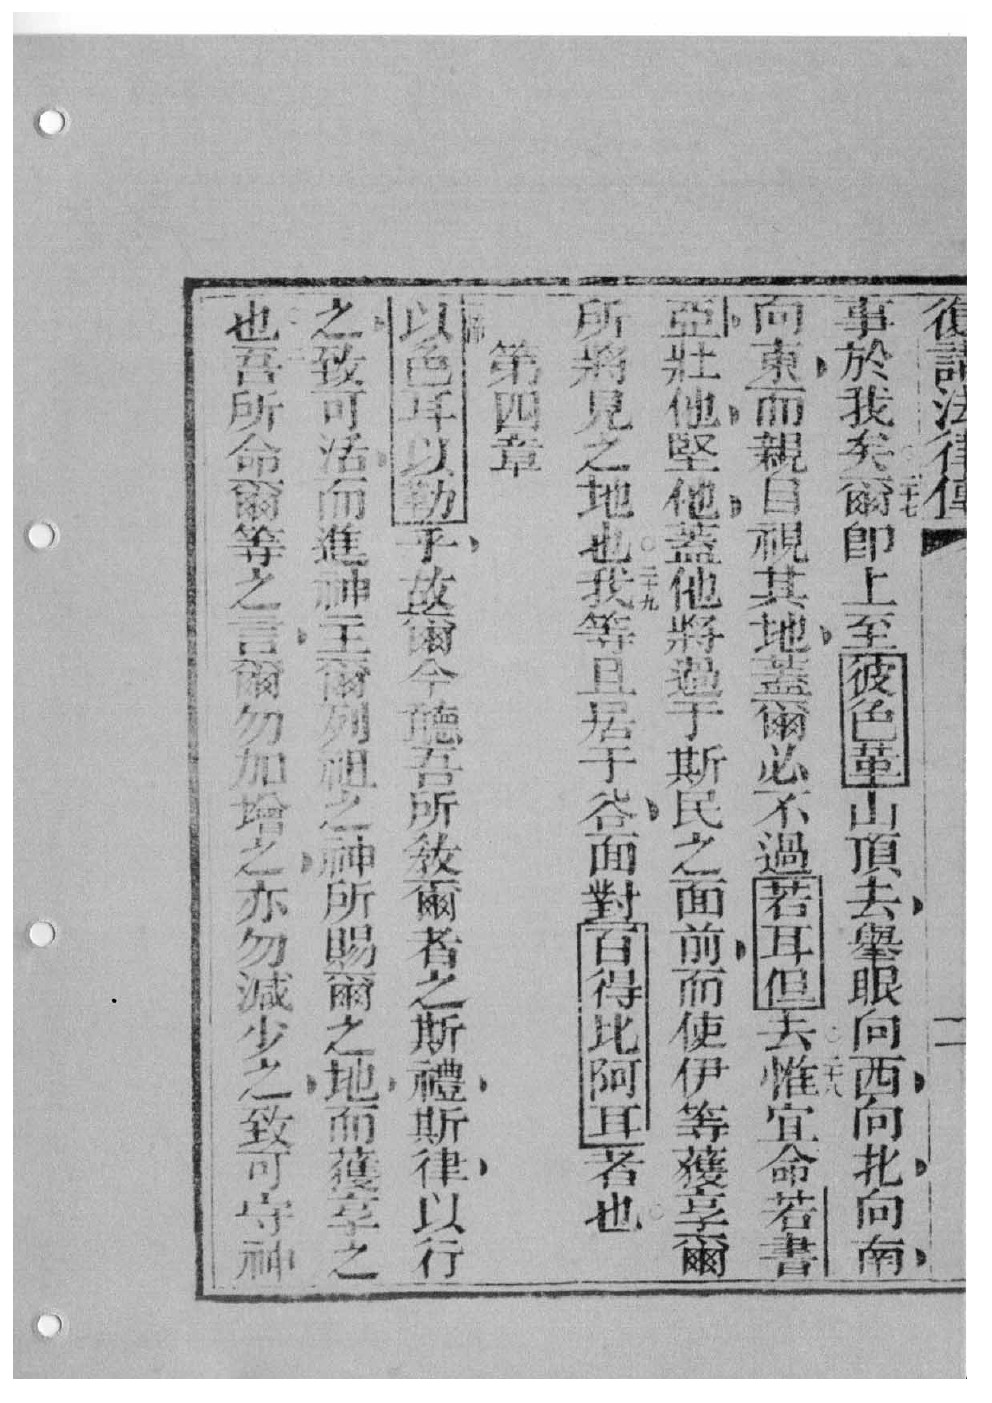 復講法律傳 二
事於我矣二十七爾卽上至彼色革山頂去舉眼向西向北向南
向東而親目視其地蓋爾必不過若耳但去二十八惟宜命若書
亞壯他堅他蓋他將過于斯民之面前而使伊等獲享爾
所將見之地也○二十九我等且居于谷面對百得比阿耳者也○
第四章
以色耳以勒乎故爾今聽吾所敎爾者之斯禮斯律以行
之致可活而進神主爾列祖之神所賜爾之地而獲享之
也吾所命爾等之言爾勿加增之亦勿減少之致可守神